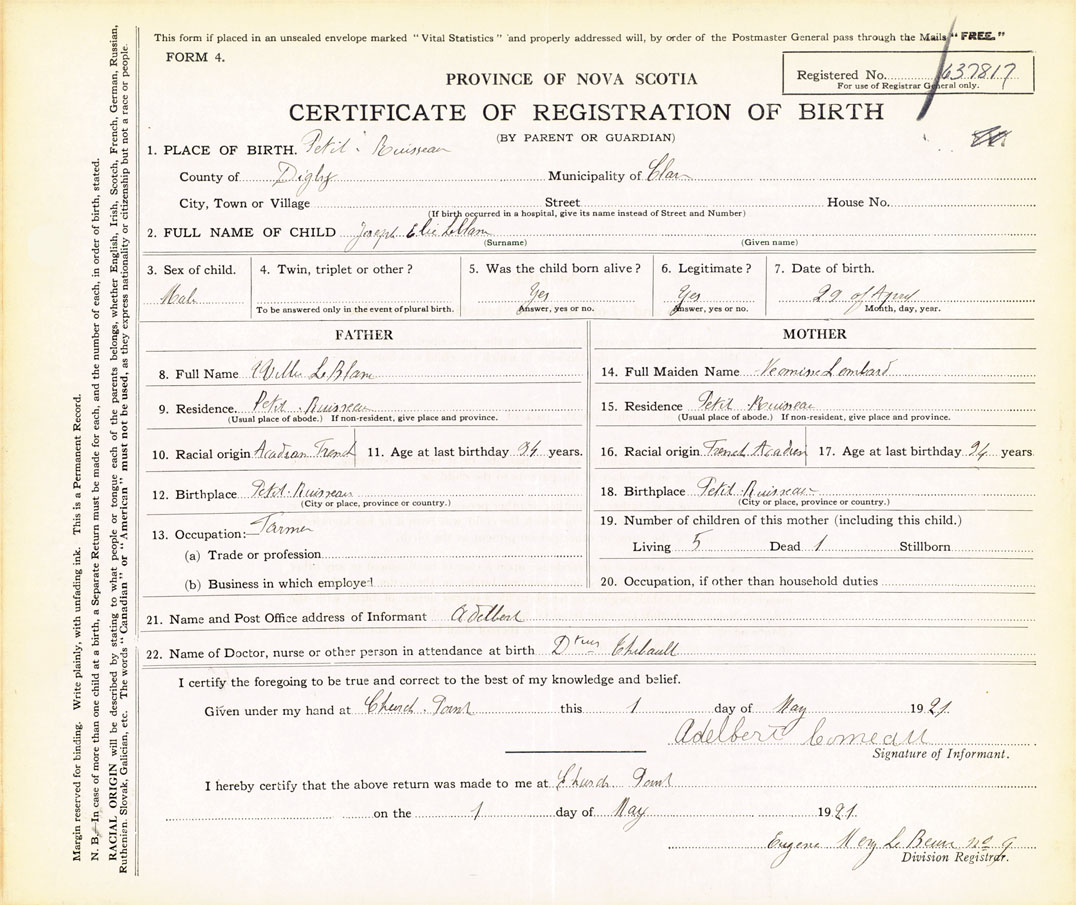 This form if placed in an unsealed envelope marked "Vital Statistics" and properly addressed will, by order of the Postmaster General pass through the Mails "FREE."
FORM 4.
Registered No. 637817
For use of Registrar General only.
PROVINCE OF NOVA SCOTIA
CERTIFICATE OF REGISTRATION OF BIRTH
(BY PARENT OR GUARDIAN)
1. PLACE OF BIRTH. Petit Ruisseau
County of Digby Municipality of Clare
City, Town or Village Street House No.
(If birth occurred in a hospital, give its name instead of Street and Number)
2. FULL NAME OF CHILD Joseph Elie LeBlanc
(Surname) (Given name)
3. Sex of child. 4. Twin, triplet or other? 5. Was the child born alive? 6. Legitimate? 7. Date of birth.
Male Yes Yes 29 of April
To be answered only in the event of plural birth. Answer, yes or no. Answer, yes or no. Month, day, year.
FATHER
8. Full Name LeBlanc
9. Residence. Petit Ruisseau
(Usual place of abode.) If non-resident, give place and province.
10. Racial origin Acadian French 11. Age at last birthday 34 years.
12. Birthplace Petit-Ruisseau
(City or place, province or country.)
13. Occupation:— Farmer
(a) Trade or profession
(b) Business in which employed
MOTHER
14. Full Maiden Name Lombard
15. Residence Petit Ruisseau
(Usual place of abode.) If non-resident, give place and province.
16. Racial origin French Acadien 17. Age at last birthday years
18. Birthplace Petit-Ruisseau
(City or place, province or country.)
19. Number of children of this mother (including this child.)
Living 5 Dead 1 Stillborn
20. Occupation, if other than household duties
21. Name and Post Office address of Informant Adelbert
22. Name of Doctor, nurse or other person in attendance at birth Thibault
I certify the foregoing to be true and correct to the best of my knowledge and belief.
Given under my hand at Church Point this 1 day of May 1921.
Adelbert Comeau
Signature of Informant.
I hereby certify that the above return was made to me at Church Point
on the 1 day of May 1921.
Eugene
Division Registrar.
Margin reserved for binding. Write plainly, with unfading ink. This is a Permanent Record.
N. B.—In case of more than one child at a birth, a Separate Return must be made for each, and the number of each, in order of birth, stated.
RACIAL ORIGIN will be described by stating to what people or tongue each of the parents belongs, whether English, Irish, Scotch, French, German, Russian,
Ruthenien, Slovak, Galician, etc. The words "Canadian" or "American" must not be used, as they express nationality or citizenship but not a race or people.